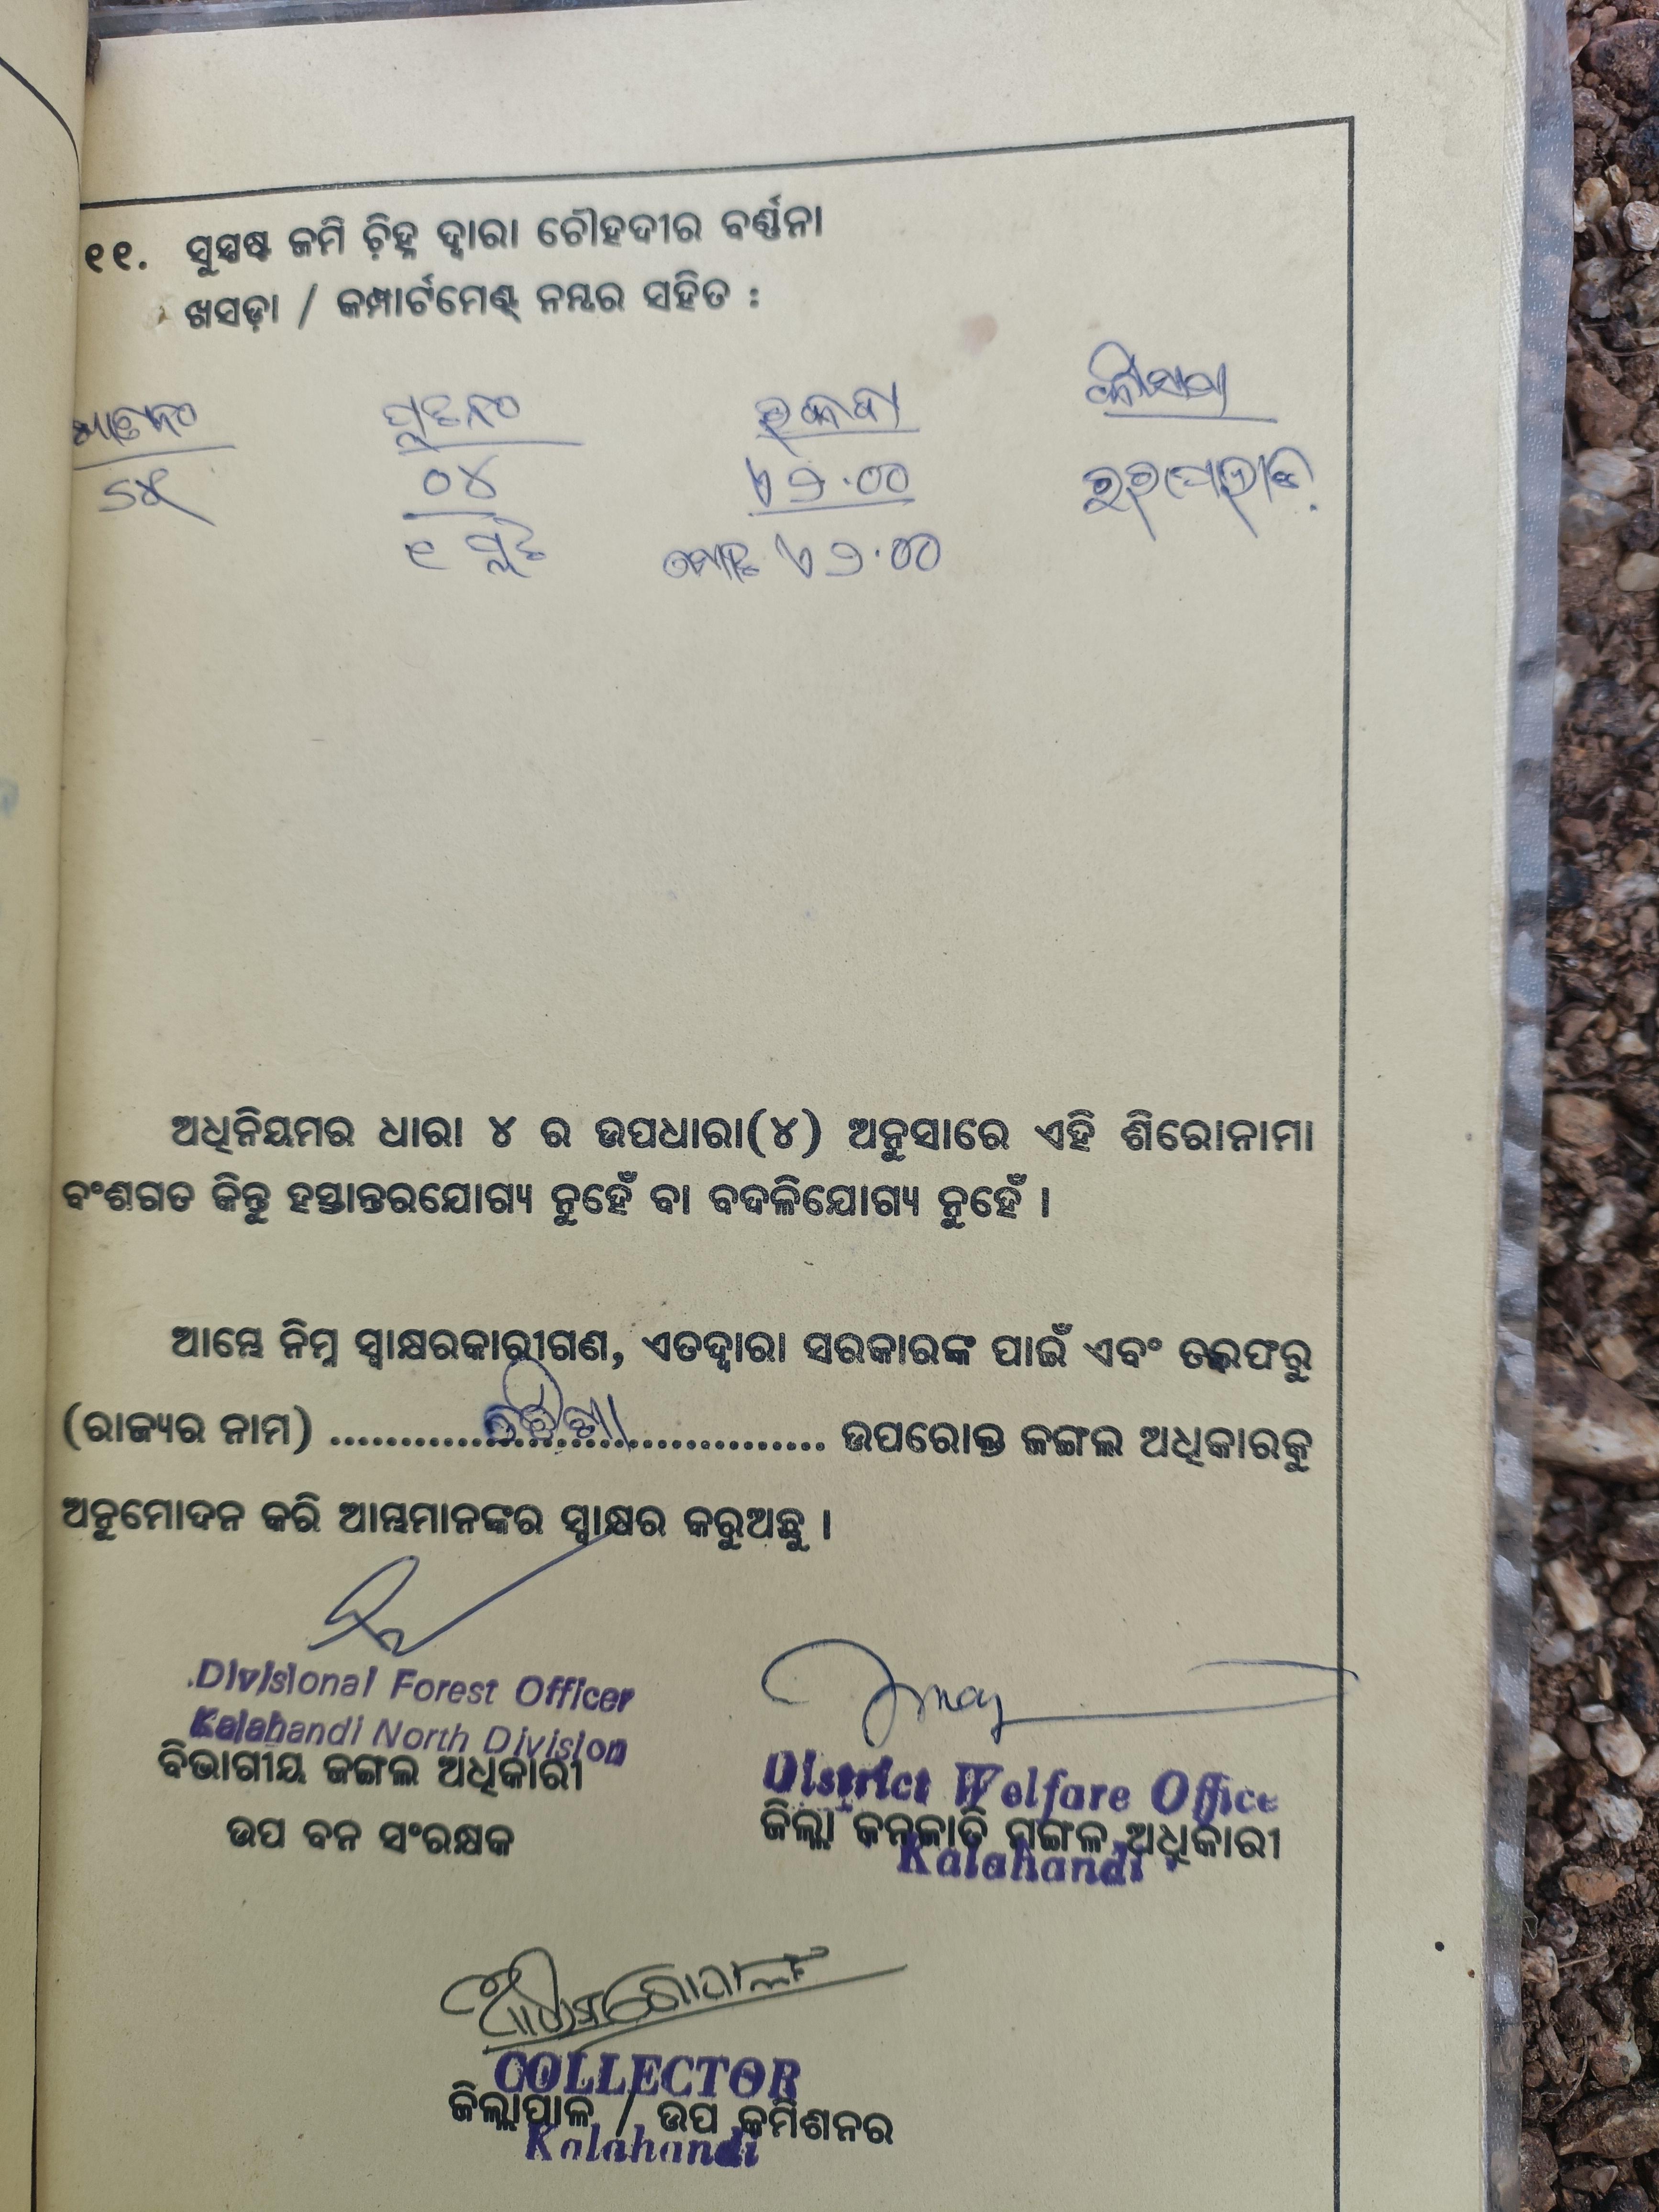 ୧୧. ସୁସ୍ପଷ୍ଟ ଜମି ଚ଼ିହ୍ନ ଦ୍ୱାରା ଚୌହଦୀର ବର୍ଣ୍ଣନା
ଖସଡ଼ା / କମ୍ପାର୍ଟମେଣ୍ଟ୍ ନମ୍ଵର ସହିତ :
ପ୍ଲଟନଂ ରକବା
୦୪ ୨.୦୦
୧ ପ୍ଲଟ ମୋଟ ୨.୦୦
ଅଧିନିୟମର ଧାରା ୪ ର ଉପଧାରା(୪) ଅନୁସାରେ ଏହି ଶିରୋନାମା
ବଂଶଗତ କିନ୍ତୁ ହସ୍ତାନ୍ତରଯୋଗ୍ୟ ନୁହେଁ ବା ବଦଳିଯୋଗ୍ୟ ନୁହେଁ ।
ଆମ୍ଭେ ନିମ୍ନ ସ୍ୱାକ୍ଷରକାରୀଗଣ, ଏତଦ୍ୱାରା ସରକାରଙ୍କ ପାଇଁ ଏବଂ ତରଫରୁ
(ରାଜ୍ୟର ନାମ) .......... ଓଡ଼ିଶା .......... ଉପରୋକ୍ତ ଜଙ୍ଗଲ ଅଧିକାରକୁ
ଅନୁମୋଦନ କରି ଆମ୍ଭମାନଙ୍କର ସ୍ୱାକ୍ଷର କରୁଅଛୁ ।
Divisional Forest Officer
Kalahandi North Division
ବିଭାଗୀୟ ଜଙ୍ଗଲ ଅଧିକାରୀ
ଉପ ବନ ସଂରକ୍ଷକ
District Welfare Office
ଜିଲ୍ଲା ଜନଜାତି ମଙ୍ଗଳ ଅଧିକାରୀ
Kalahandi
COLLECTOR
ଜିଲ୍ଲାପାଳ / ଉପ କମିଶନର
Kalahandi